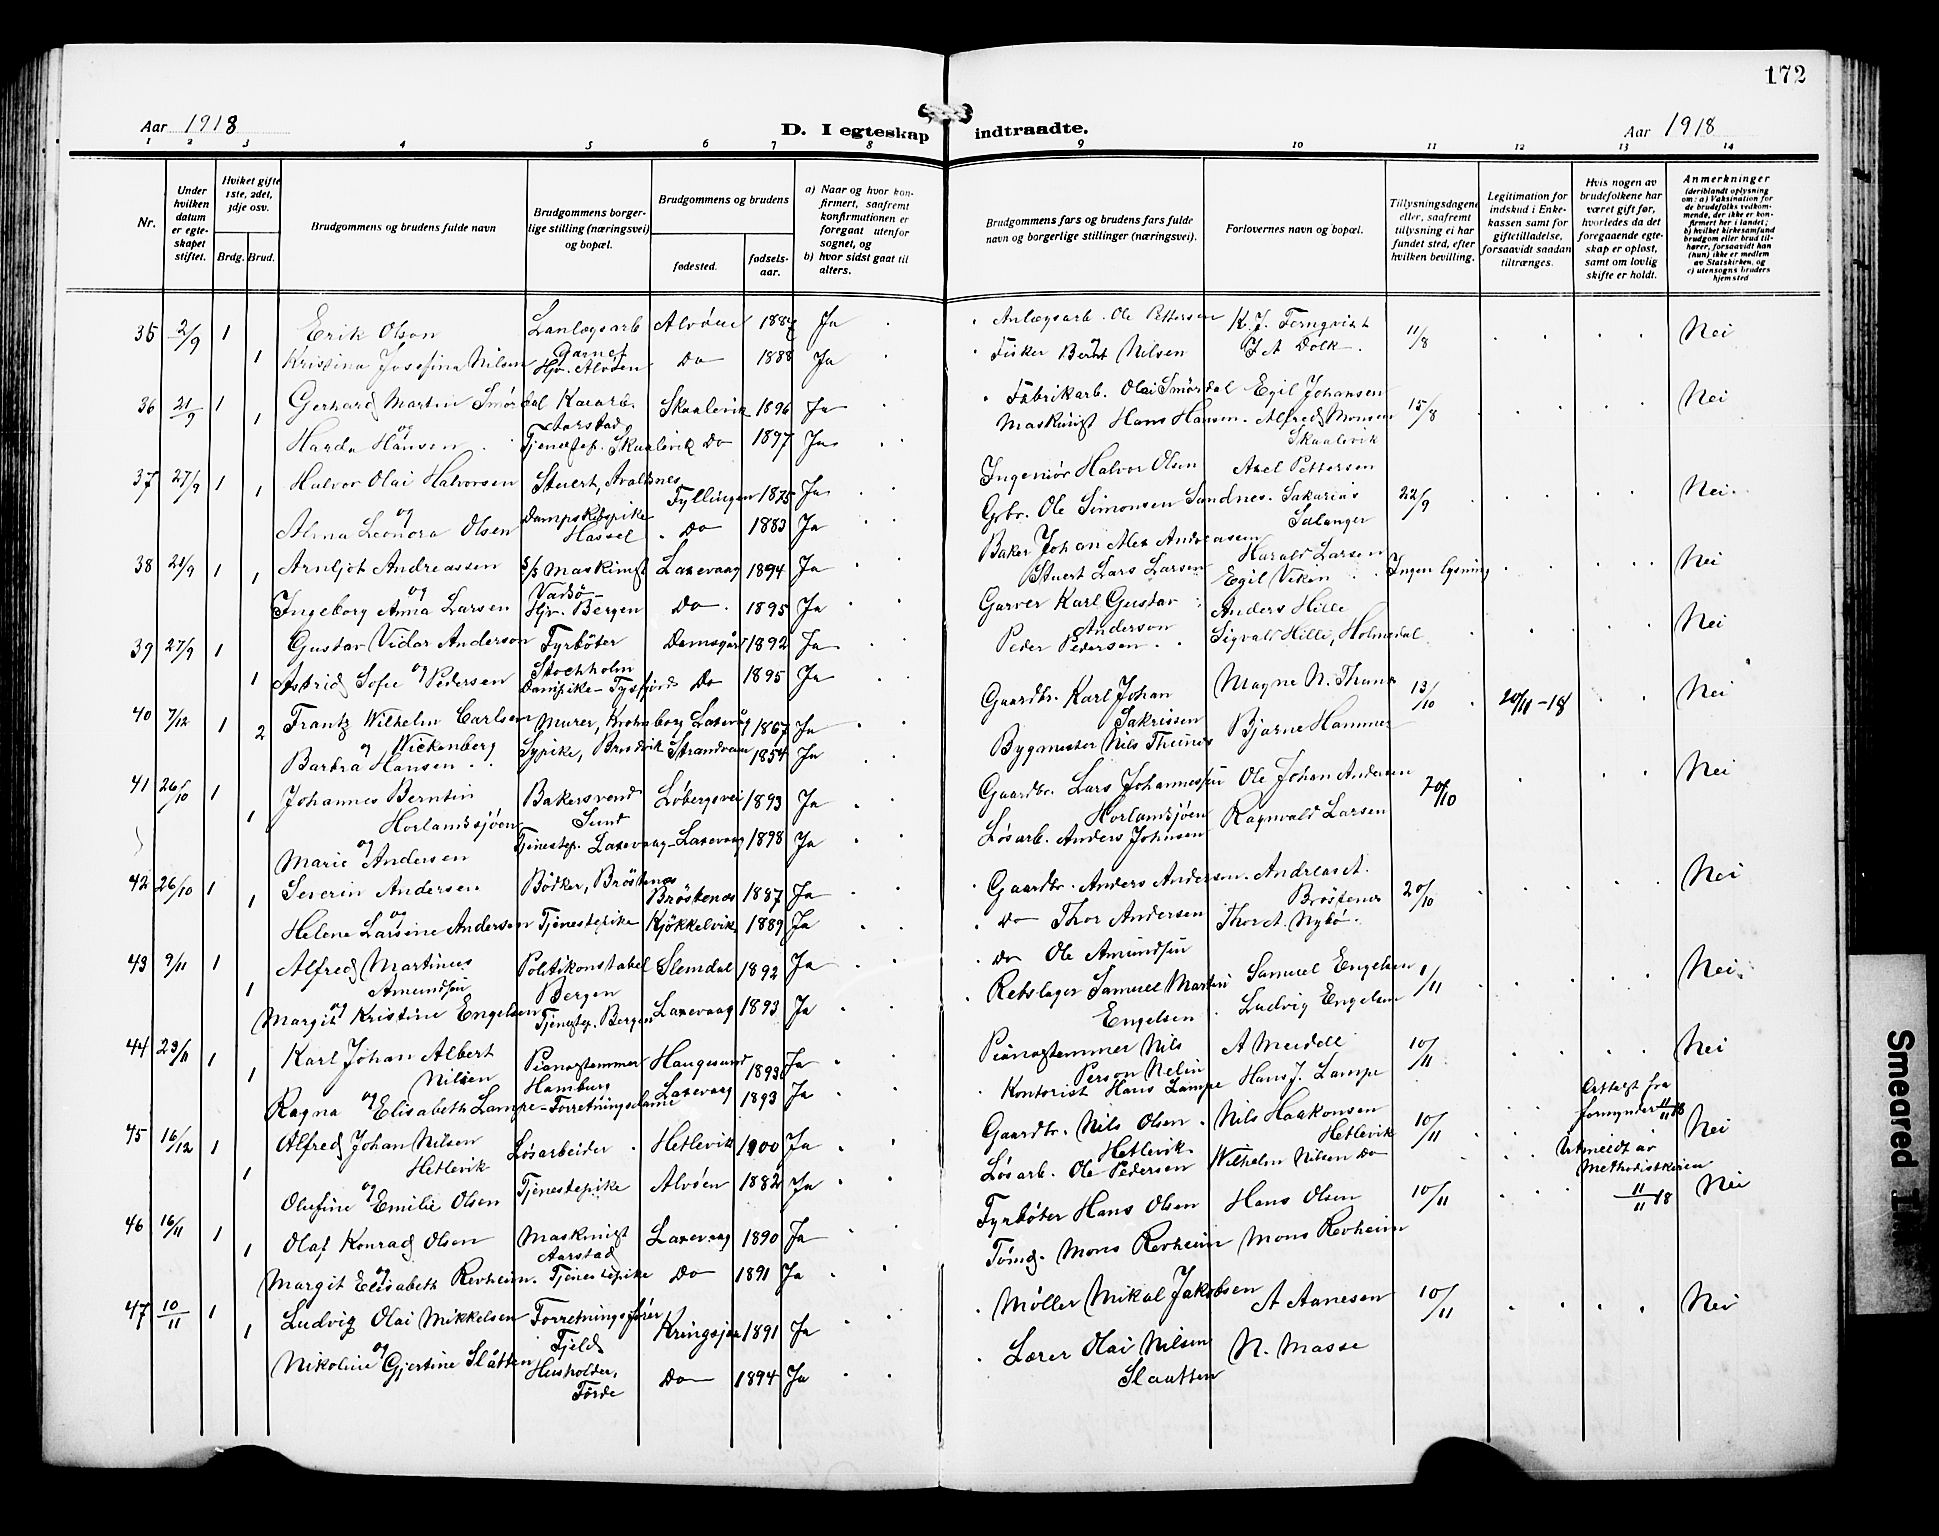 172
Aar 1918
D. I egteskap indtraadte.
Aar 1918
1 2 3 4 5 6 7 8 9 10 11 12 13 14
Nr.
Under hvilken datum er egteskapet stiftet.
Hviket gifte 1ste, 2det, 3dje osv.
Brdg. Brud.
Brudgommens og brudens fulde navn
Brudgommens borgerlige stilling (næringsvei) og bopæl.
Brudgommens og brudens
fødested.
fødselsaar.
a) Naar og hvor konfirmert, saafremt konfirmationen er foregaat utenfor sognet, og
b) hvor sidst gaat til alters.
Brudgommens fars og brudens fars fulde navn og borgerlige stillinger (næringsvei).
Forlovernes navn og bopæl.
Tillysningsdagene eller, saafremt tillysning ei har fundet sted, efter hvilken bevilling.
Legitimation for indskud i Enkekassen samt for giftetilladelse, forsaavidt saadan tiltrænges.
Hvis nogen av brudefolkene har været gift før, hvorledes da det foregaaende egteskap er opløst, samt om lovlig skifte er holdt.
Anmerkninger
(deriblandt oplysning om: a) Vaksination for de brudefolks vedkommende, der ikke er konfirmert her i landet; b) hvilket kirkesamfund brudgom eller brud tilhører, forsaavidt han (hun) ikke er medlem av Statskirken, og c) utensogns bruders hjemsted
35 2/9 1 Erik Olson Alvöen Ja Anlægsarb. Ole Pettersen K. J. Ternqvist 11/8 Nei
1 Kristina Josefina Nilsen Hjv. Alvöen Do 1888 Ja Fisker Nilsen
36 21/9 1 Gerhard Martin Smördal Aarstad Skaalevik 1896 Ja Fabrikarb. Olai Smördal Egil Johansen 15/8 Nei
1 og Harda Hansen Tjenestep. Skaalevik Do 1897 Ja Maskinist Hans Hansen Alfred Monsen
Skaalevik
37 27/9 1 Halvor Olai Halvorsen Stuert, Avaldsnes Fyllingen 1875 Ja Ingeniör Halvor Olsen Axel Pettersen 22/9 Nei
1 og Alma Leonora Olsen Dampskibspike Hassel Do 1883 Ja Grbr. Ole Simonsen Sandnes Sakarias
Salanger
38 1 Arnljot Andreassen S/S Maskinist Vadsö Laxevaag 1894 Ja Baker Johan Alex Andreassen Harald Larsen Ingen lysning Nei
1 og Ingeborg Anna Larsen Hjv. Bergen Do 1895 Ja Stuert Lars Larsen Egil Viken
39 27/9 1 Gustav Vidar Anderson Fyrböter Stockholm Damsgård 1892 Ja Garver Karl Gustav Anderson Anders Hille Nei
1 Astrid Sofie og Pedersen Dampike Do 1895 Ja Peder Pedersen Sigvald Hille, Holmedal
40 7/12 1 2 Frantz Wilhelm Carlsen Wickenberg Murer, Laxevåg 1867 Ja Gaardbr. Karl Johan Sakrissen Magne N. Thunes 13/10 20/11-18 Nei
og Barbra Hansen Sypike, Strandvæn 1854 Ja Bygmester Nils Thunes Bjarne Hammer
41 26/10 1 Johannes Berntin Horlamsjöen Bakersvend Sund Löbergsvei 1893 Ja Gaardbr. Lars Johannessen Horlamsjöen Ole Johan Andersen 20/10 Nei
1 og Marie Andersen Tjenestep. Laxevaag Laxevaag 1898 Ja Lösarb. Anders Johnsen Ragnvald Larsen
42 26/10 1 Severin Andersen Bödker, Bröstenes Bröstenes 1887 Ja Gaardbr. Anders Andersen Andreas A. Bröstenes 20/10 Nei
1 og Helene Larsine Andersen Tjenestepike Kjökkelvik 1889 Ja Do Thor Andersen Thor A. Nybö
43 9/11 1 Alfred Martinus Amundsen Politikonstabel Bergen Slemdal 1892 Ja Do Ole Amundsen Samuel Engelsen 1/11 Nei
1 og Margit Kristine Engelsen Tjenestep. Bergen Laxevaag 1893 Ja Rebslager Samuel Martin Engelsen Ludvig Engelsen
44 23/11 1 Karl Johan Albert Nilsen Pianostemmer Hamburg Haugesund 1893 Ja Pianostemmer Nils Person Nelin A Meidell 10/11 Nei
1 Ragna og Elisabeth Lampe Forretningsdame Laxevaag 1893 Ja Kontorist Hans Lampe Hans J. Lampe
45 16/12 1 Alfred Johan Nilsen Hetlevik Lösarbeider Hetlevik 1900 Ja Gaardbr. Nils Olsen Hetlevik Nils Haakonsen Hetlevik 10/11 Attest fra formynder 11/11 18 Nei
1 og Olufine Emilie Olsen Tjenestepike Alvöen 1882 Ja Lösarb. Ole Pedersen Wilhelm Nilsen Do Utmeldt av Methodistkirken 11/11 18
46 16/11 1 Olaf Konrad Olsen Maskinist Aarstad Laxevaag 1890 Ja Fyrböter Hans Olsen Hans Olsen 10/11 Nei
1 og Margit Elisabeth Revheim Tjenestepike Do 1891 Ja Tömd. Mons Revheim Mons Revheim
47 10/11 1 Ludvig Olai Mikkelsen Forretningsförer Fjeld Kringsjaa 1891 Ja Möller Mikal Jakobsen A Aanesen 10/11 Nei
1 og Nikoline Gjertine Slåtten Husholder, Förde Do 1894 Ja Lærer Olai Nilsen Slaatten N. Masse
Smeared